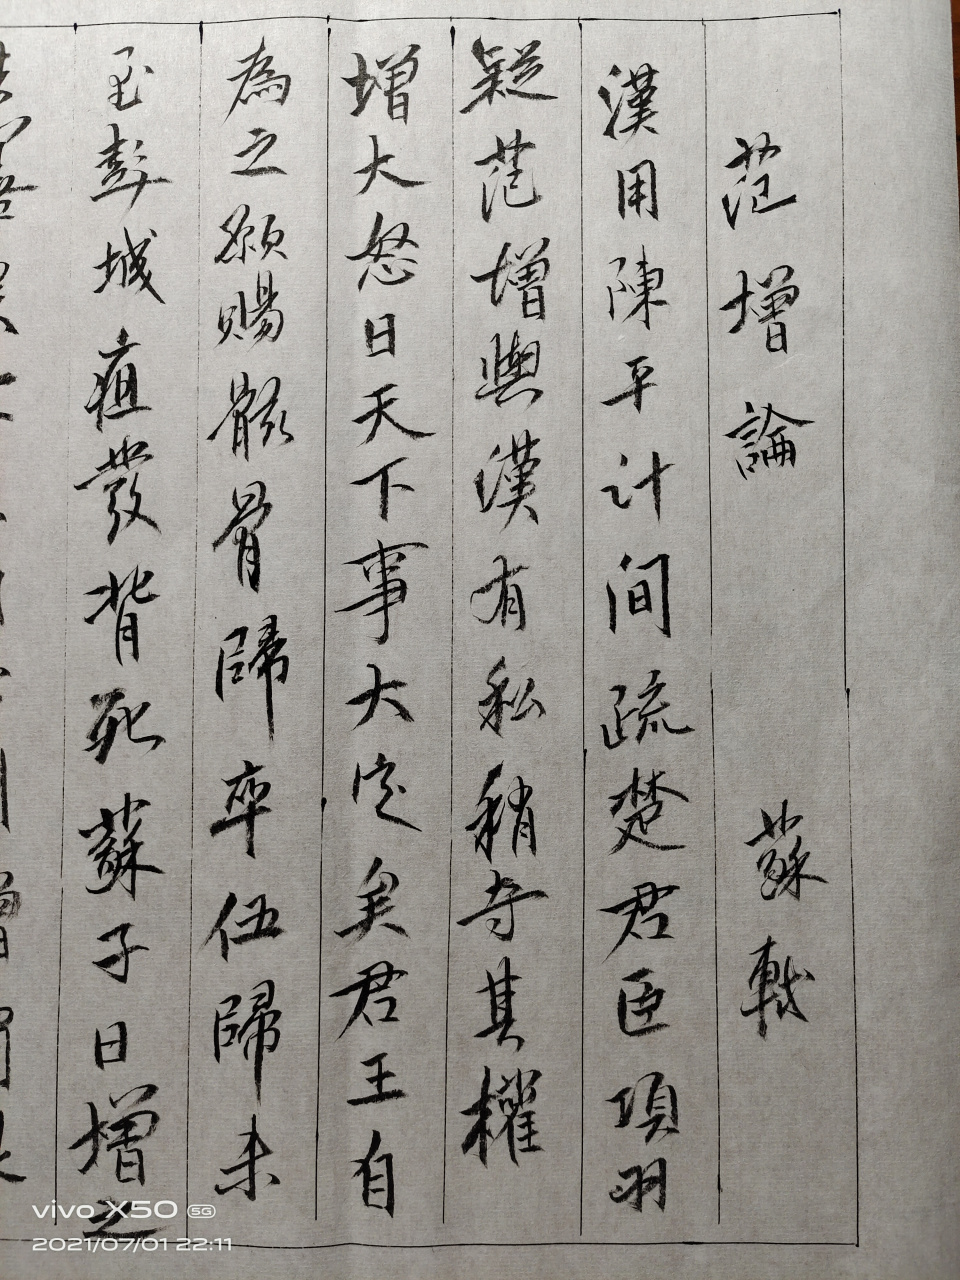 范增論 蘇軾
漢用陳平计间疏楚君臣項羽
疑范增與漢有私稍夺其權
增大怒曰天下事大定矣君王自
為之願賜骸骨歸卒伍歸未
至彭城疽發背死蘇子曰增之
vivo X50 5G
2021/07/01 22:11